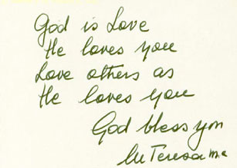 God is Love
He loves you
Love others as
He loves you
God bless you
M Teresa mc